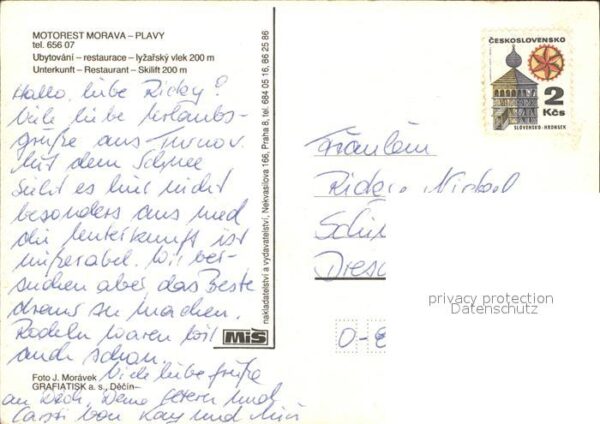 MOTOREST MORAVA – PLAVY
tel. 656 07
Ubytování – restaurace – lyžařský vlek 200 m
Unterkunft – Restaurant – Skilift 200 m
Hallo, liebe Ricky!
Viele liebe Urlaubs-
grüße aus Turnov.
Mit dem Schnee
sieht es hier nicht
besonders aus und
die Unterkunft ist
miserabel. Wir ver-
suchen aber das Beste
draus zu machen.
Rodeln waren wir
auch schon.
Viele liebe Grüße
an Dich, Deine Eltern und
von Kay und
Foto J. Morávek
GRAFIATISK a. s., Děčín
nakladatelství a vydavatelství, Nekvasilova 166, Praha 8, tel. 684 05 16, 86 25 86
MiŠ
ČESKOSLOVENSKO
2
Kčs
SLOVENSKO-HRONSEK
Fräulein
Nickel
Dres
O-
privacy protection
Datenschutz